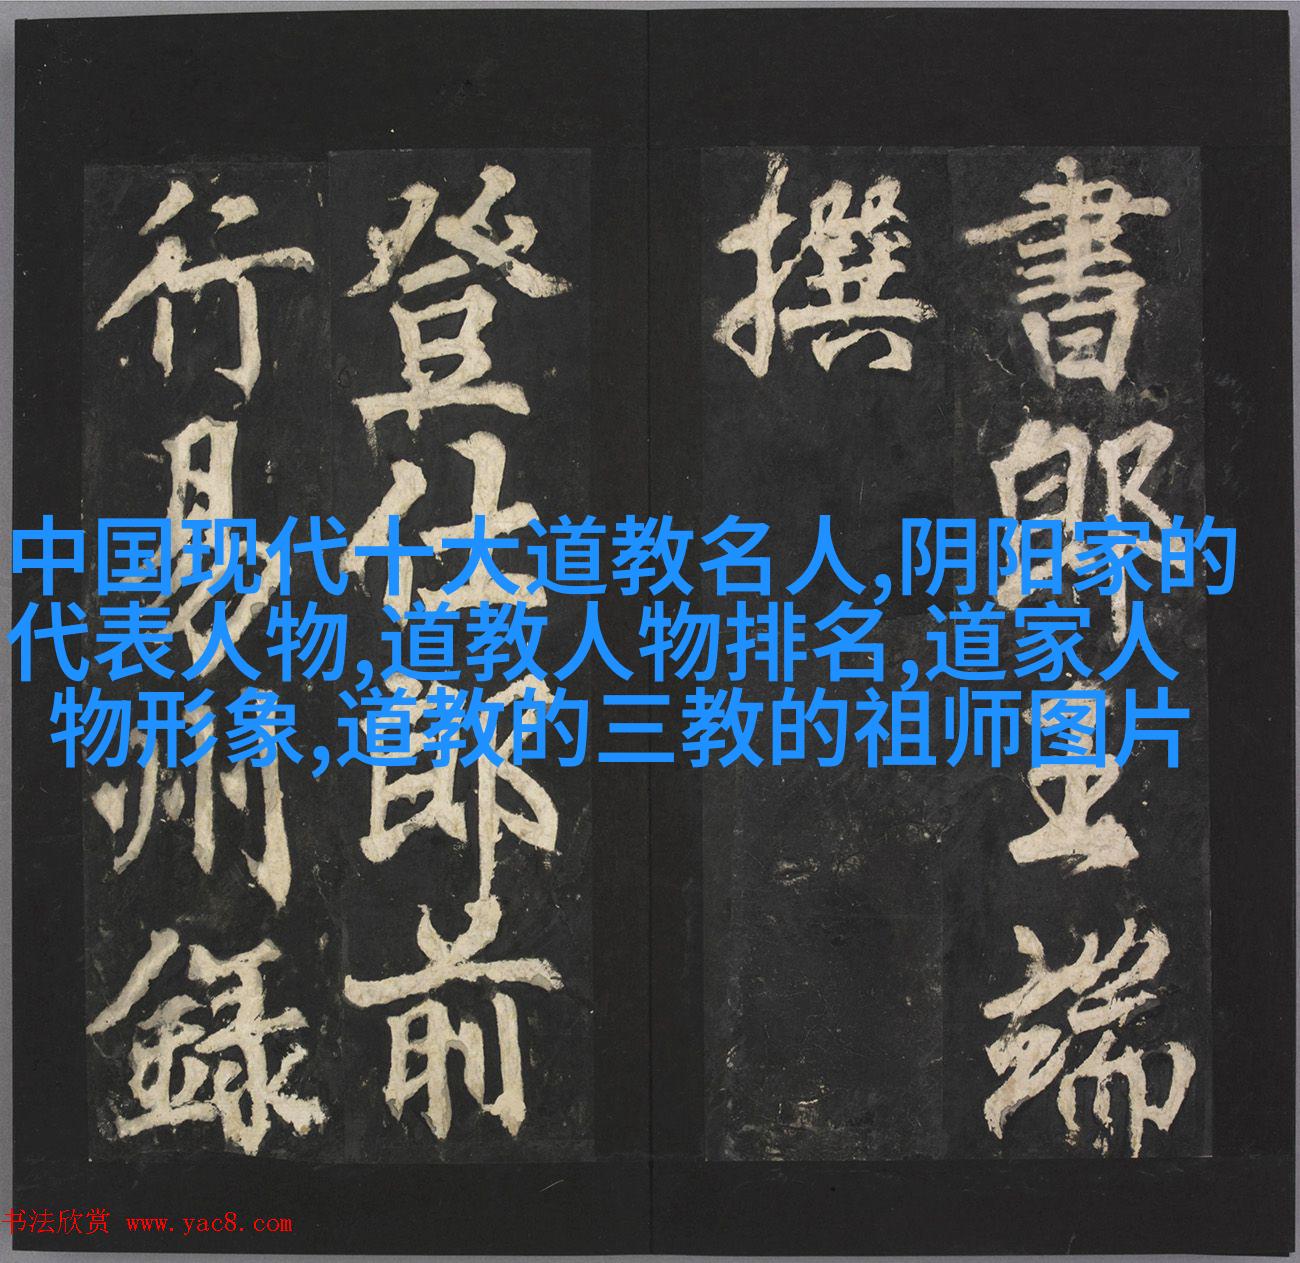 書郎王端
撰
登仕郎前
行易州錄
中国现代十大道教名人,阴阳家的
代表人物,道教人物排名,道家人
物形象,道教的三教的祖师图片
书法欣赏 www.yac8.com